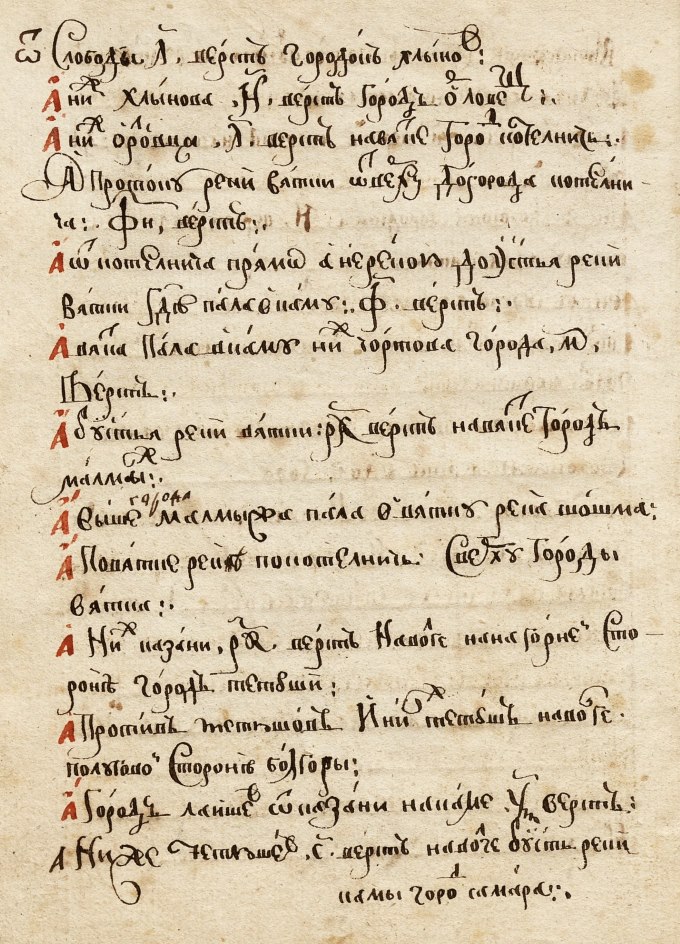 ѿ Слободы .л҃. верстъ городокъ хлыновъ:
А ниж хлынова .н҃. верстъ городъ ѻрловецъ:.
А ниж ѻрловца .л҃. верстъ на вятке город котелничь:.
А по протоку реки вятки ѿ верху до города котелни-
ча:. верстъ:.
А ѿ котелнича прямѡ к черемису до ꙋстья реки
вятки где пала в каму:. верстъ:.
А вятка пала в каму ниж чортова города, м҃,
верстъ:.
А ѿ ꙋстья реки вятки: верстъ на вятке городъ
малмыж:.
А выше города малмыжа пала в вятку река шошма:
А по вятке реке по котелничь: сверху городы
вятка:.
А ниж казани, верстъ на волге на нагорнеи сто-
роне городъ тетюши:
А противъ тетюшовъ и ниж тетюшъ на волге
по луговои стороне болгоры:
А городъ лаишев ѿ казани на каме верстъ:
А ниже тетюшев верстъ на волге ꙋсть реки
камы город самара:.